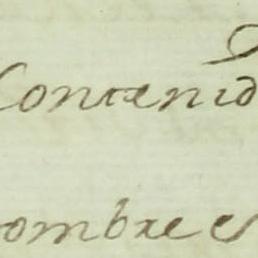 Contenid
ombre es